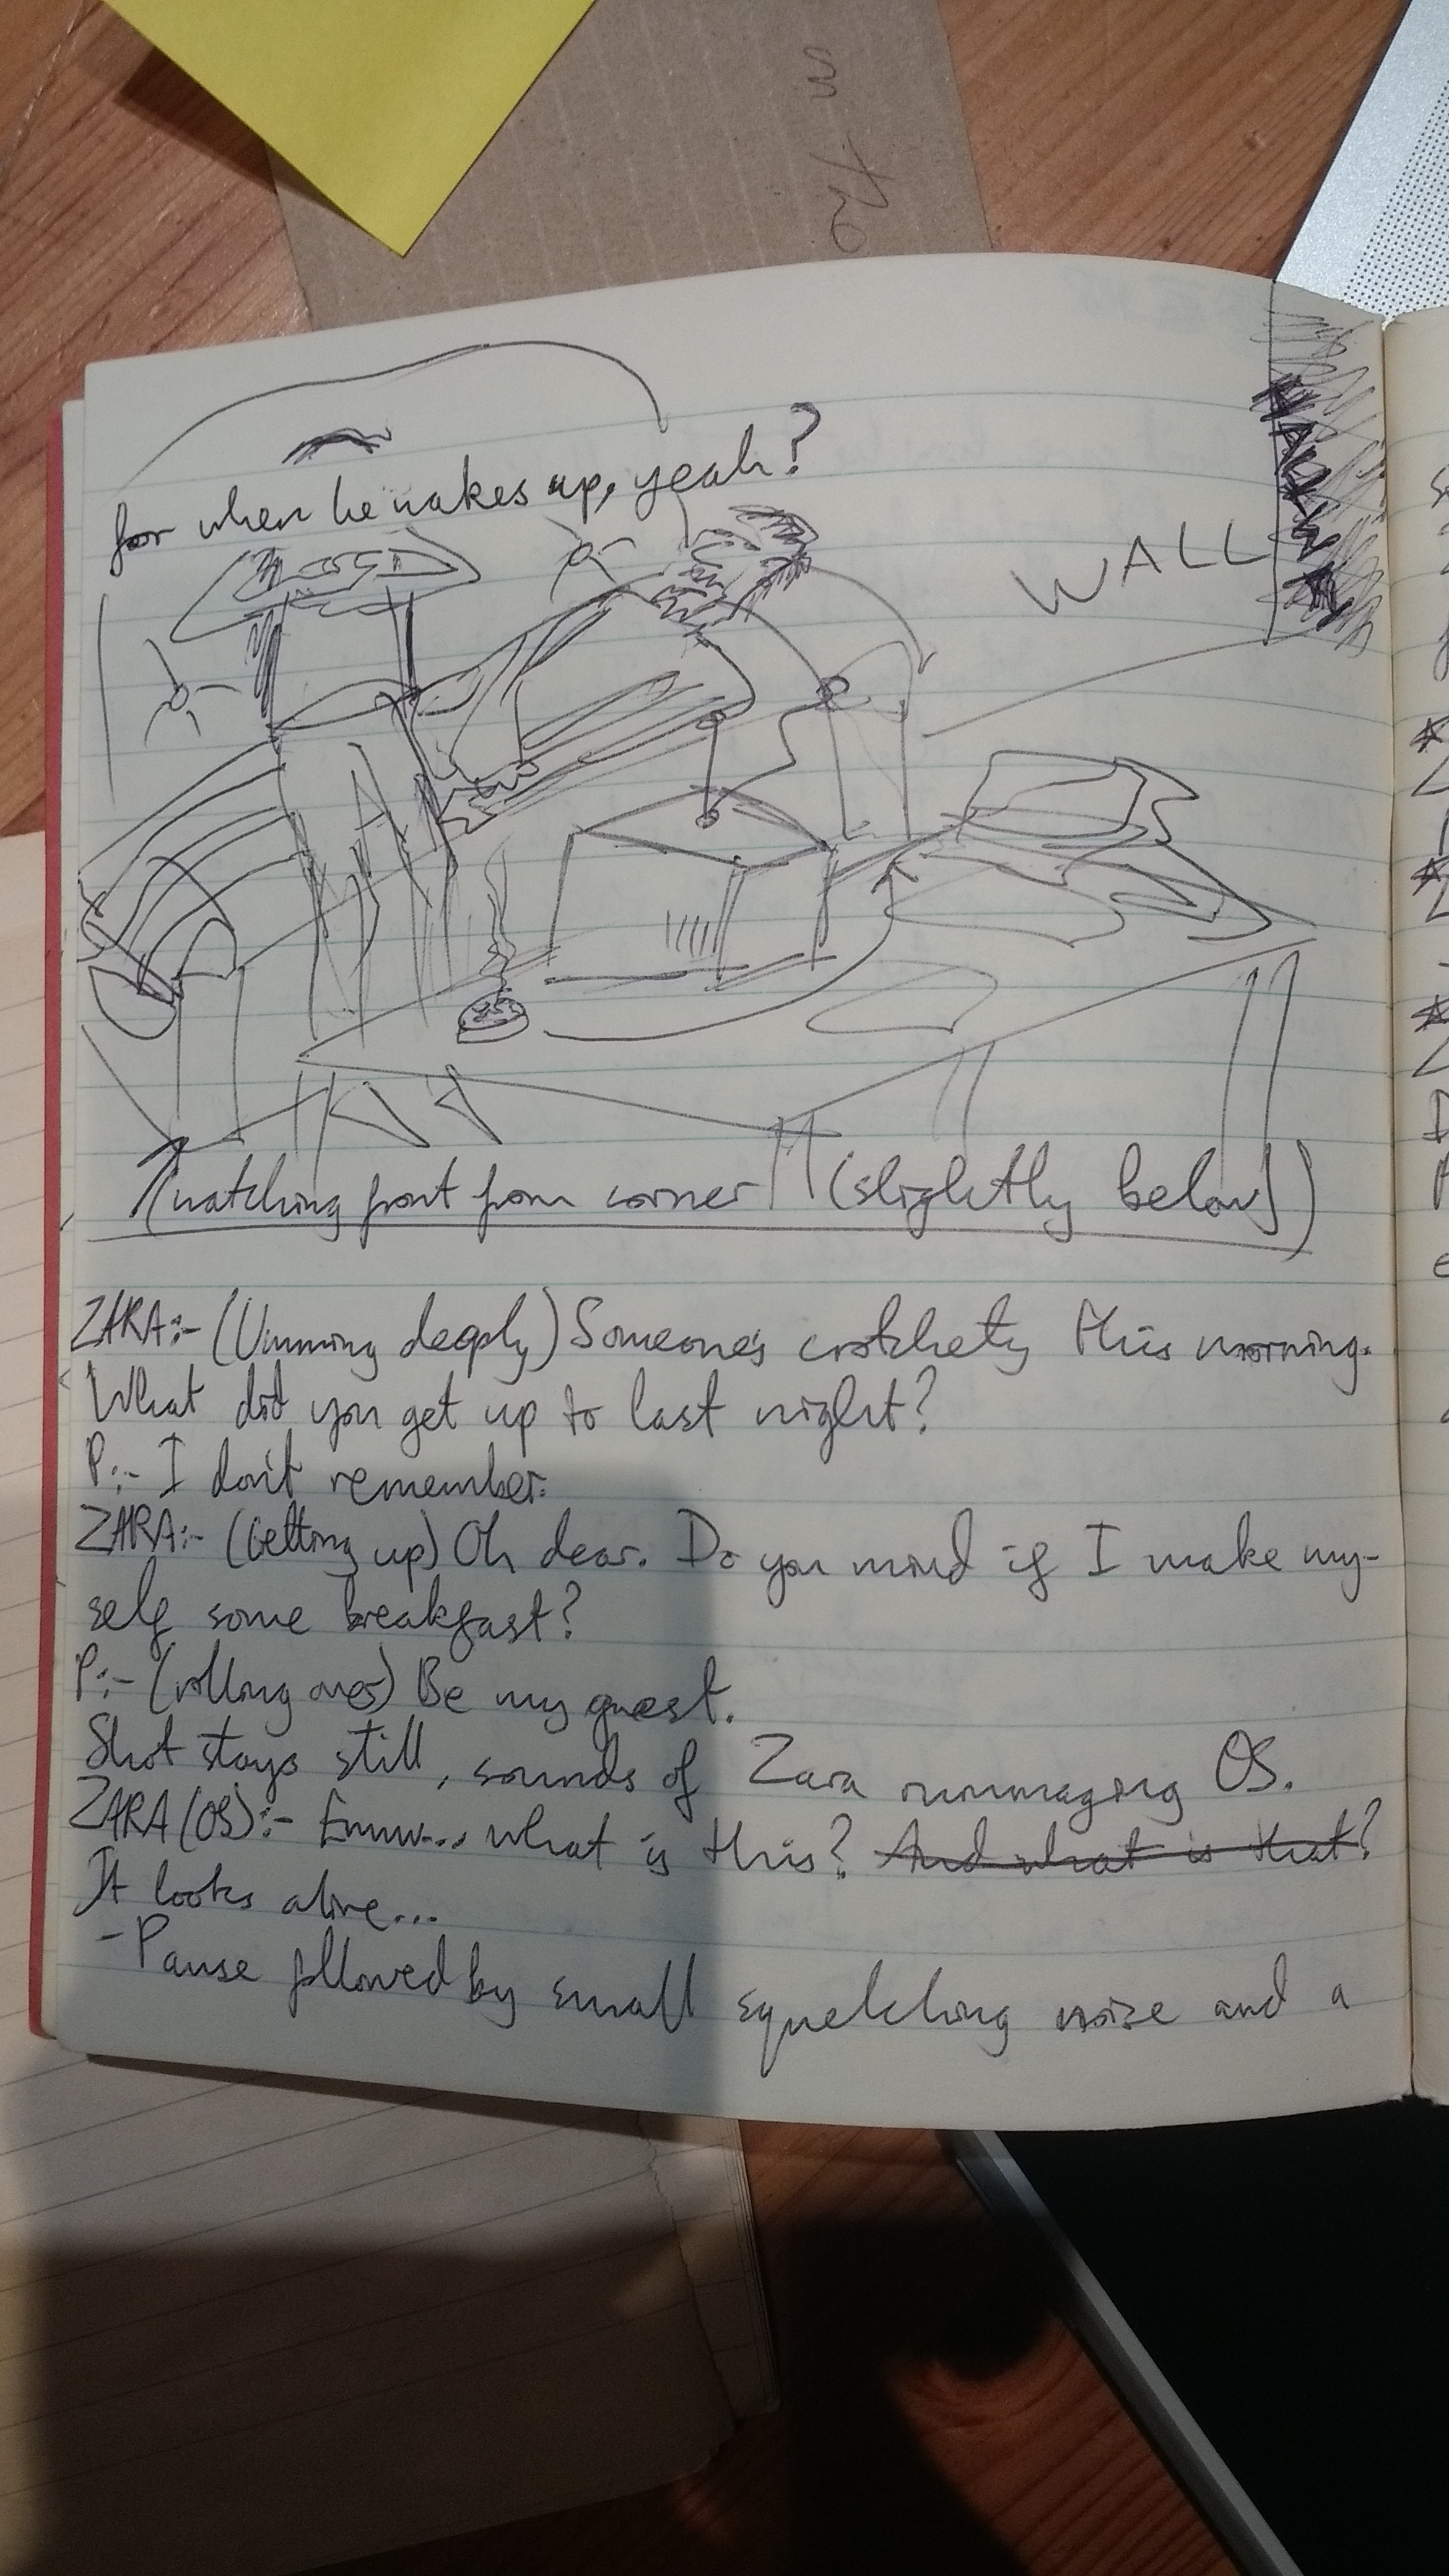 m the
for when he wakes up, yeah?
WALL
(watching front from corner (slightly below))
ZARA:- (Ummming deeply) Someone's crotchety this morning.
What did you get up to last night?
P:- I don't remember.
ZARA:- (Getting up) Oh dear. Do you mind if I make my-
self some breakfast?
P:- (rolling over) Be my guest.
Shot stays still, sounds of Zara rummaging OS.
ZARA (OS):- Emm... what is this? And what is that?
It looks alive...
- Pause followed by small squelching noise and a